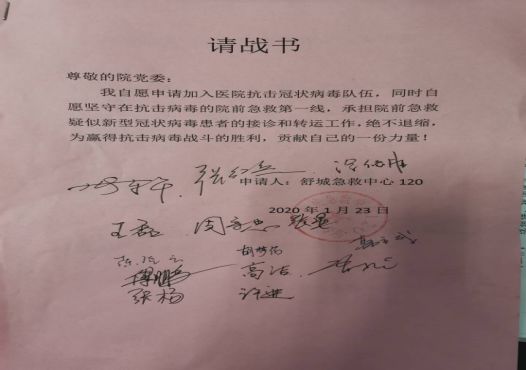 请战书
尊敬的院党委：
我自愿申请加入医院抗击冠状病毒队伍，同时自
愿坚守在抗击病毒的院前急救第一线，承担院前急救
疑似新型冠状病毒患者的接诊和转运工作，绝不退缩，
为赢得抗击病毒战斗的胜利，贡献自己的一份力量！
申请人：舒城急救中心 120
2020 年 1 月 23 日
王磊
高洁
张杨
许进